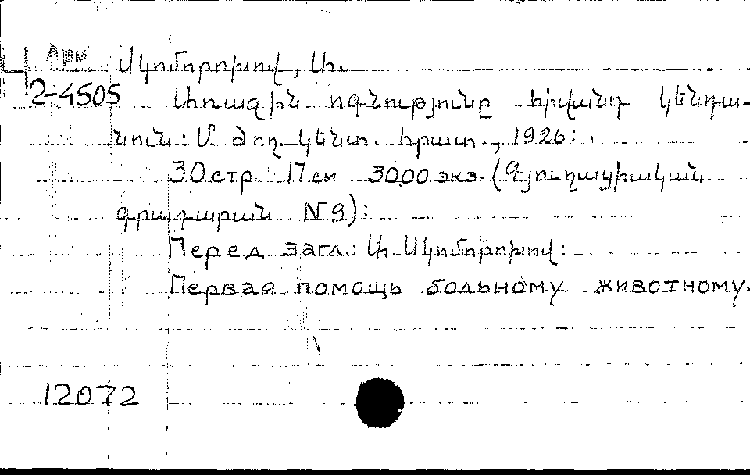 Арм Սկոմորոխով, Ա.
2-4505 Առաջին օգնությունը հիվանդ կենդա-
նուն: Մ. ժող. կենտ. հրատ., 1926:
30 стр. 17 см 3000 экз. (Գյուղացիական
գրադարան N 9):
Перед загл: Ա. Սկոմորոխով:
Первая помощь больному животному.
12072